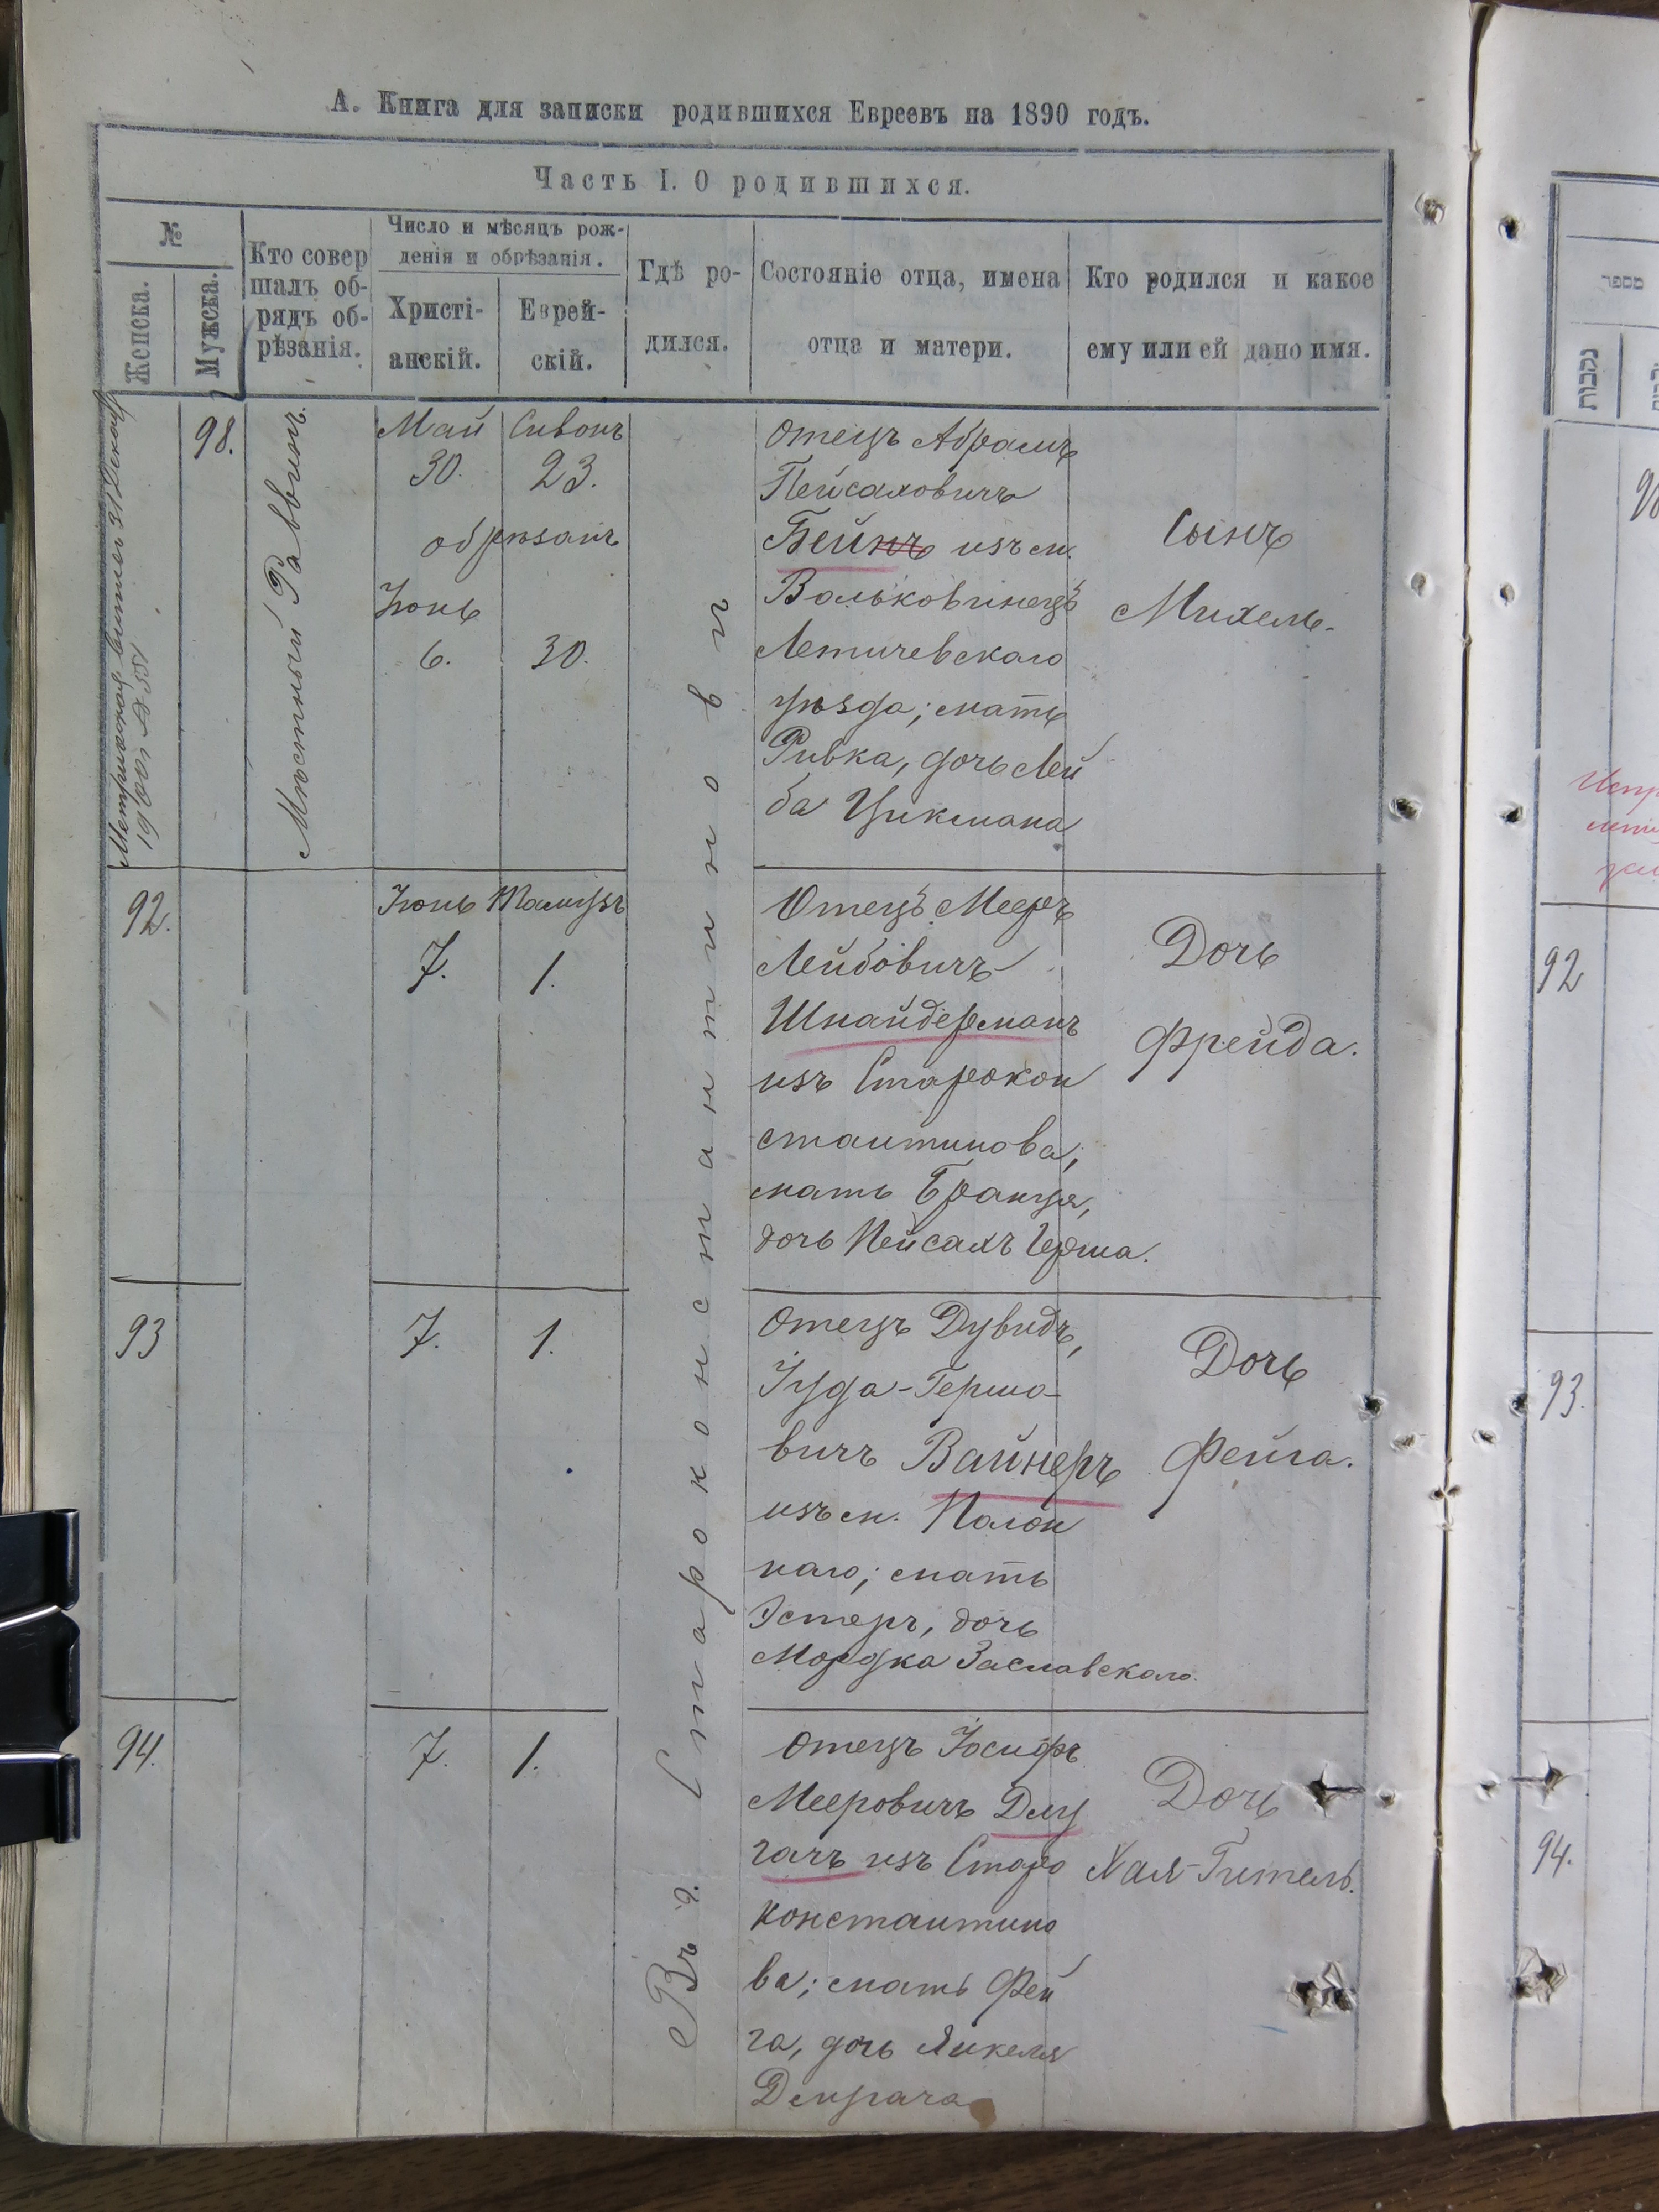 А. Книга для записки родившихся Евреевъ на 1890 годъ.
Часть I. О родившихся.
№
Женска.
Мужска.
Кто совер
шалъ об-
рядъ об-
рѣзанія.
Число и мѣсяцъ рож-
денія и обрѣзанія.
Христі-
анскій.
Еврей-
скій.
Гдѣ ро-
дился.
Состояніе отца, имена
отца и матери.
Кто родился и какое
ему или ей дано имя.
98.
Мѣстный Раввинъ.
Май
30.
Сивонъ
23.
обрѣзанъ
Іюнь
6.
30.
Въ г. Староконстантиновѣ
Отецъ Абрамъ
Пейсаховичъ
Бейнъ изъ м.
Вольковинецъ
Летичевскаго
уѣзда; мать
Ривка, дочь Лей
ба Цикмана
Сынъ
Михель.
92.
Іюнь
7.
Тамузъ
1.
Отецъ Мееръ
Лейбовичъ
Шнайдерманъ
изъ Старокон
стантинова;
мать Бранця,
дочь Пейсахъ Герша.
Дочь
Фрейда.
93
7.
1.
Отецъ Дувидъ,
Іуда-Гершо-
вичъ Вайнеръ
изъ м. Полон
наго; мать
Эстеръ, дочь
Мордка Заславскаго.
Дочь
Фейга.
94.
7.
1.
Отецъ Іосифъ
Мееровичъ Длу
гачъ изъ Старо
константино
ва; мать Фей
га, дочь Янкеля
Дочь
Хая-Гитель.
מספר
נקבות
92
93.
94.